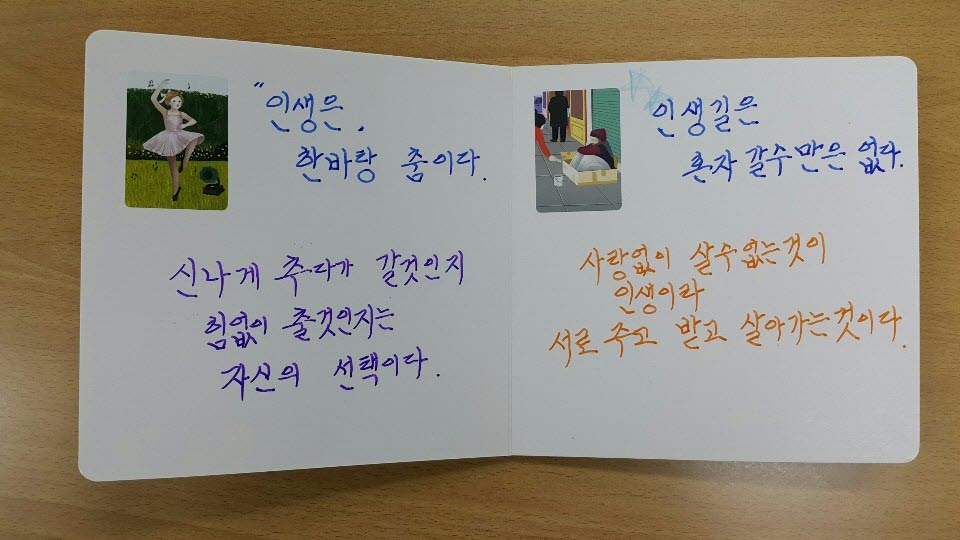 "인생은.
한바탕 춤이다.
신나게 추다가 갈것인지
힘없이 출것인지는
자신의 선택이다.
인생길은
혼자 갈수만은 없다.
사랑없이 살수없는것이
인생이라
서로 주고 받고 살아가는것이다.